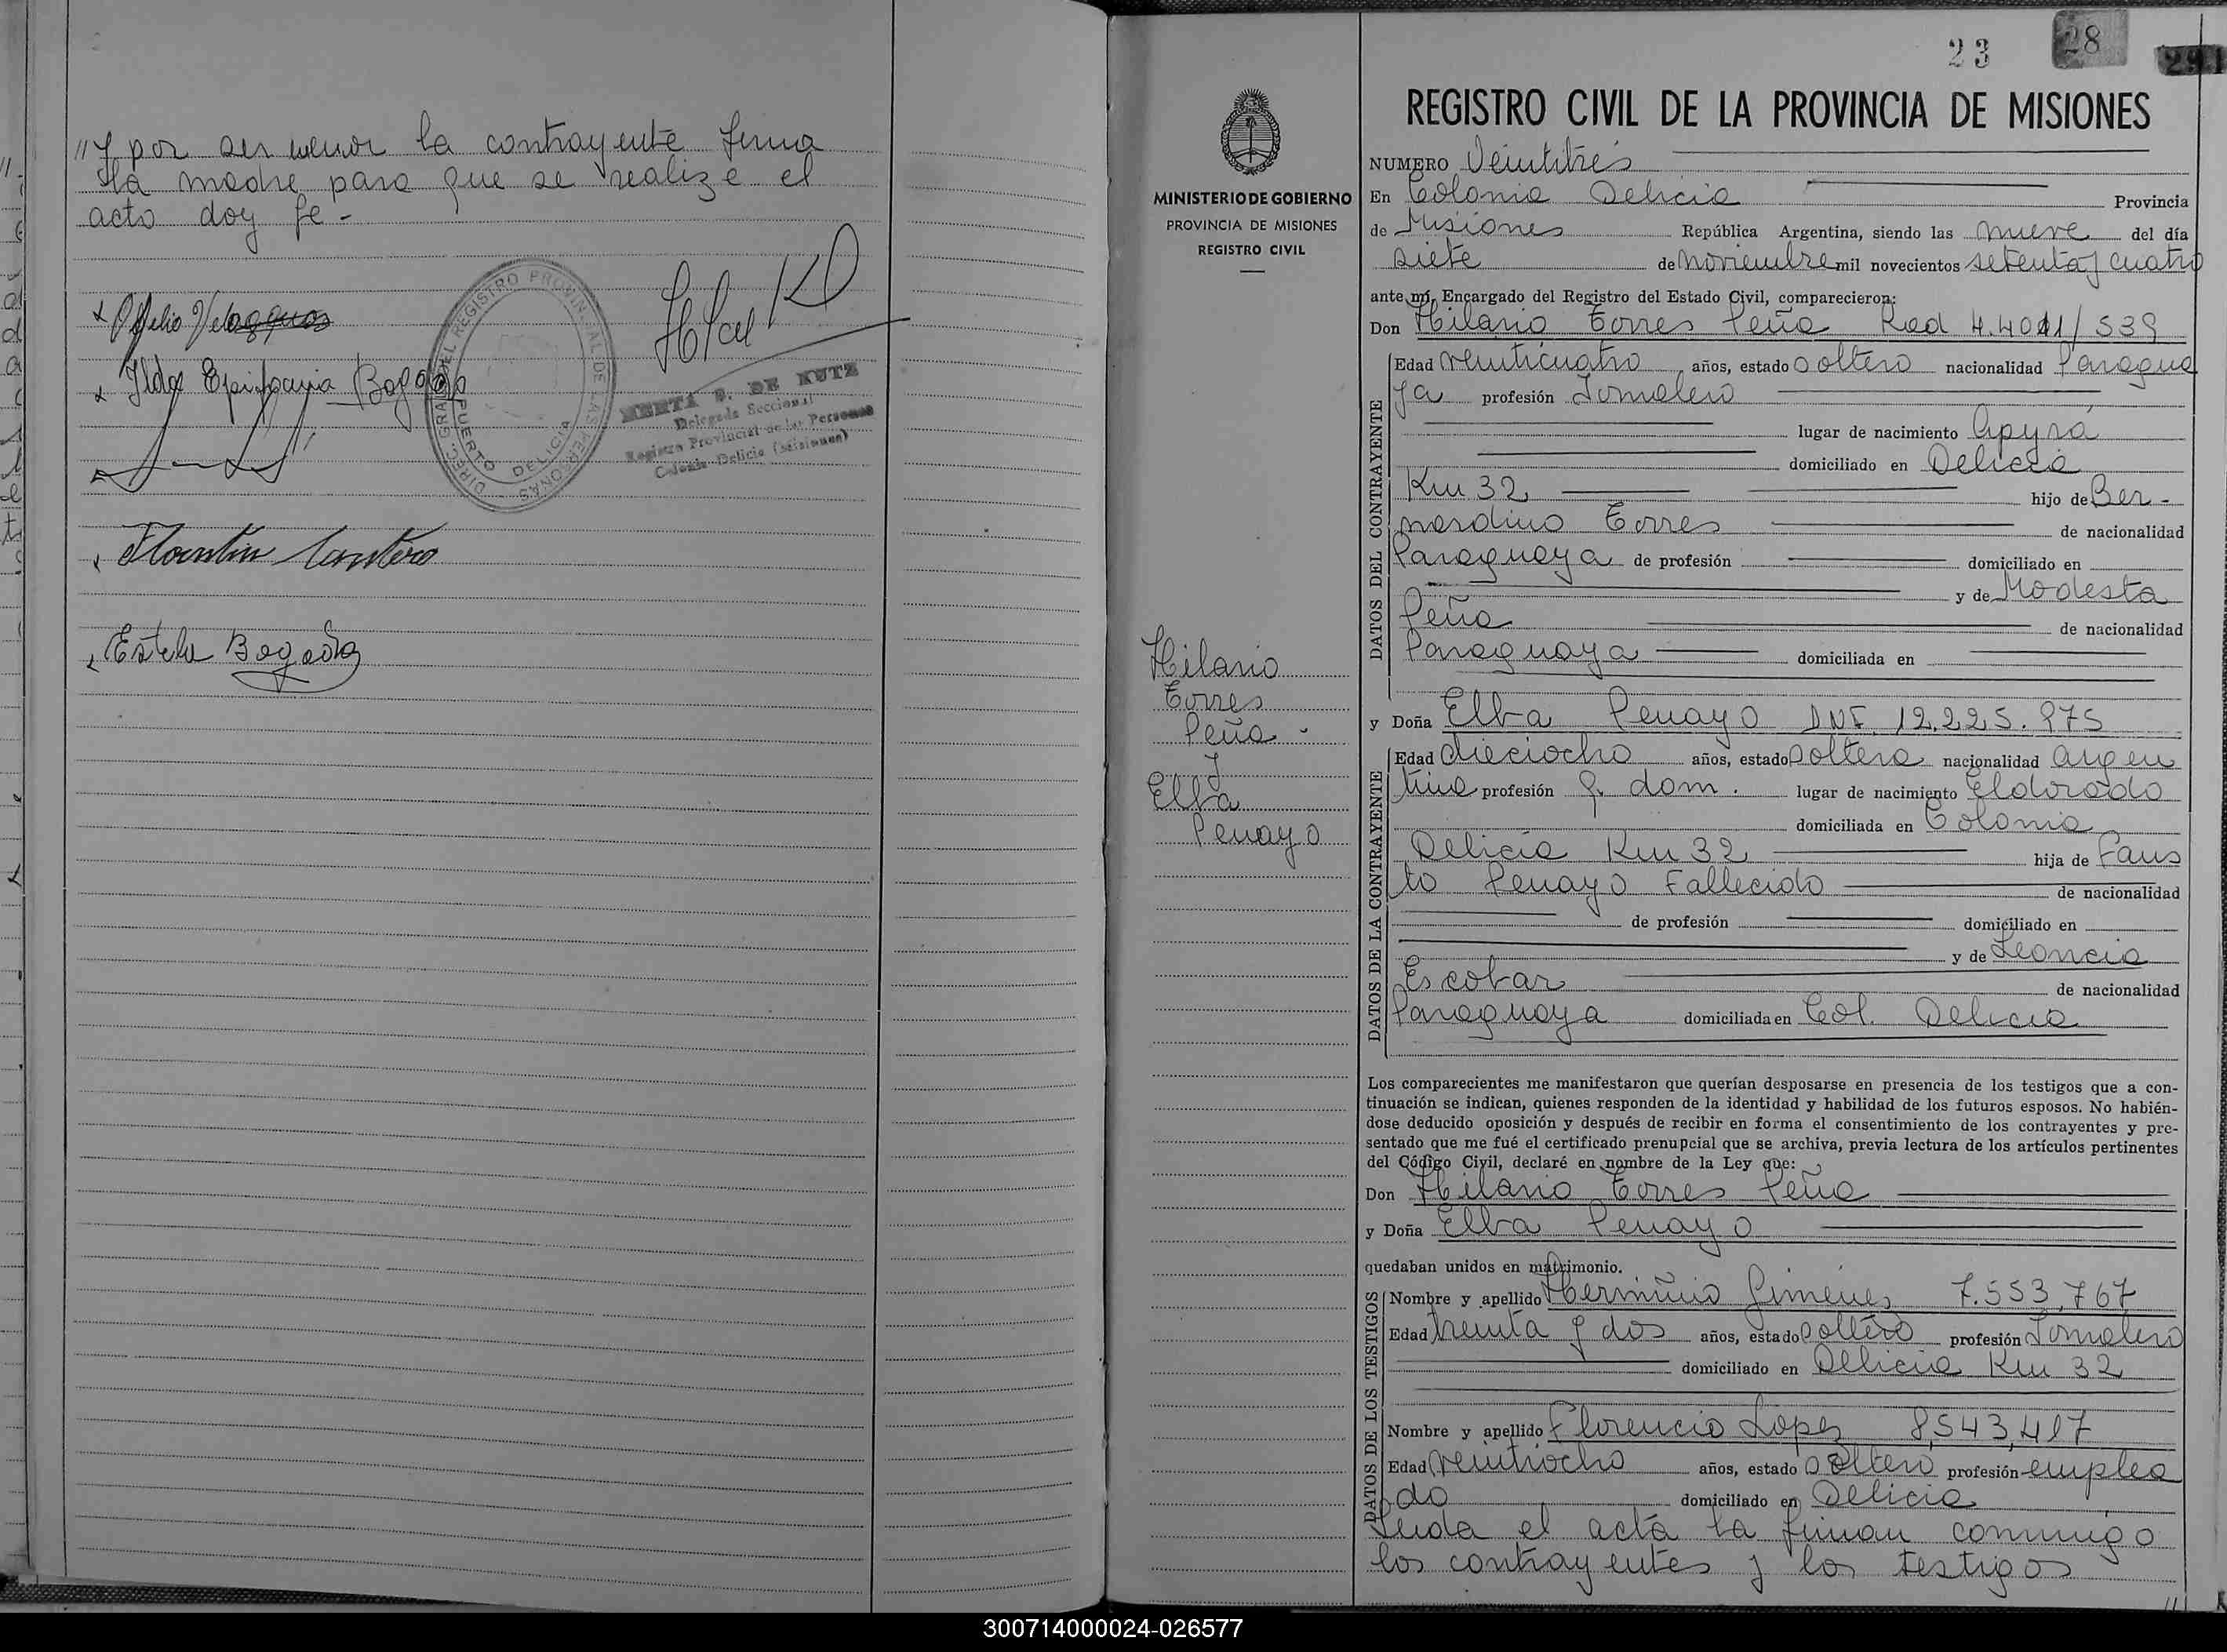 "y por ser menor la contrayente firma
la madre para que se realize el
acto doy fe -
x Ofelio Velazquez
x Ilda Epifania Bogado
DIREC. GRAL. DEL REGISTRO PROVINCIAL DE LAS PERSONAS
PUERTO DELICIA
DE KUTZ
Delegada Seccional
Registro Provincial de las Personas
Colonia Delicia (Misiones)
x Florentin
x Estela Bogado
23
28
29
MINISTERIO DE GOBIERNO
PROVINCIA DE MISIONES
REGISTRO CIVIL
Hilario
Torres
Peña -
y
Elba
Penayo
REGISTRO CIVIL DE LA PROVINCIA DE MISIONES
NUMERO Veintitrés
En Colonia Delicia Provincia
de Misiones República Argentina, siendo las nueve del día
siete de noviembre mil novecientos setenta y cuatro
ante mí, Encargado del Registro del Estado Civil, comparecieron:
Don Hilario Torres Peña Rad /539
DATOS DEL CONTRAYENTE
Edad veinticuatro años, estado soltero nacionalidad Paragua
ya profesión Jornalero
lugar de nacimiento Apyrá
domiciliado en Delicia
Km 32 hijo de Ber-
nardino Torres de nacionalidad
Paraguaya de profesión domiciliado en
y de Modesta
Peña de nacionalidad
Paraguaya domiciliada en
y Doña Elba Penayo DNI. 12.225.975
DATOS DE LA CONTRAYENTE
Edad dieciocho años, estado soltera nacionalidad argen
tina profesión q. dom. lugar de nacimiento Eldorado
domiciliada en Colonia
Delicia Km 32 hija de Faus
to Penayo Fallecido de nacionalidad
de profesión domiciliado en
y de Leoncia
Escobar de nacionalidad
Paraguaya domiciliada en Col. Delicia
Los comparecientes me manifestaron que querían desposarse en presencia de los testigos que a con-
tinuación se indican, quienes responden de la identidad y habilidad de los futuros esposos. No habién-
dose deducido oposición y después de recibir en forma el consentimiento de los contrayentes y pre-
sentado que me fué el certificado prenupcial que se archiva, previa lectura de los artículos pertinentes
del Código Civil, declaré en nombre de la Ley que:
Don Hilario Torres Peña
y Doña Elba Penayo
quedaban unidos en matrimonio.
DATOS DE LOS TESTIGOS
Nombre y apellido Herminio Gimenes 7.553.767
Edad treinta y dos años, estado soltero profesión Jornalero
domiciliado en Delicia Km 32
Nombre y apellido Florencio Lopez 8,543,417
Edad veintiocho años, estado soltero profesión emplea
do domiciliado en Delicia
Leida el acta la firman conmigo
los contrayentes y los testigos
300714000024-026577